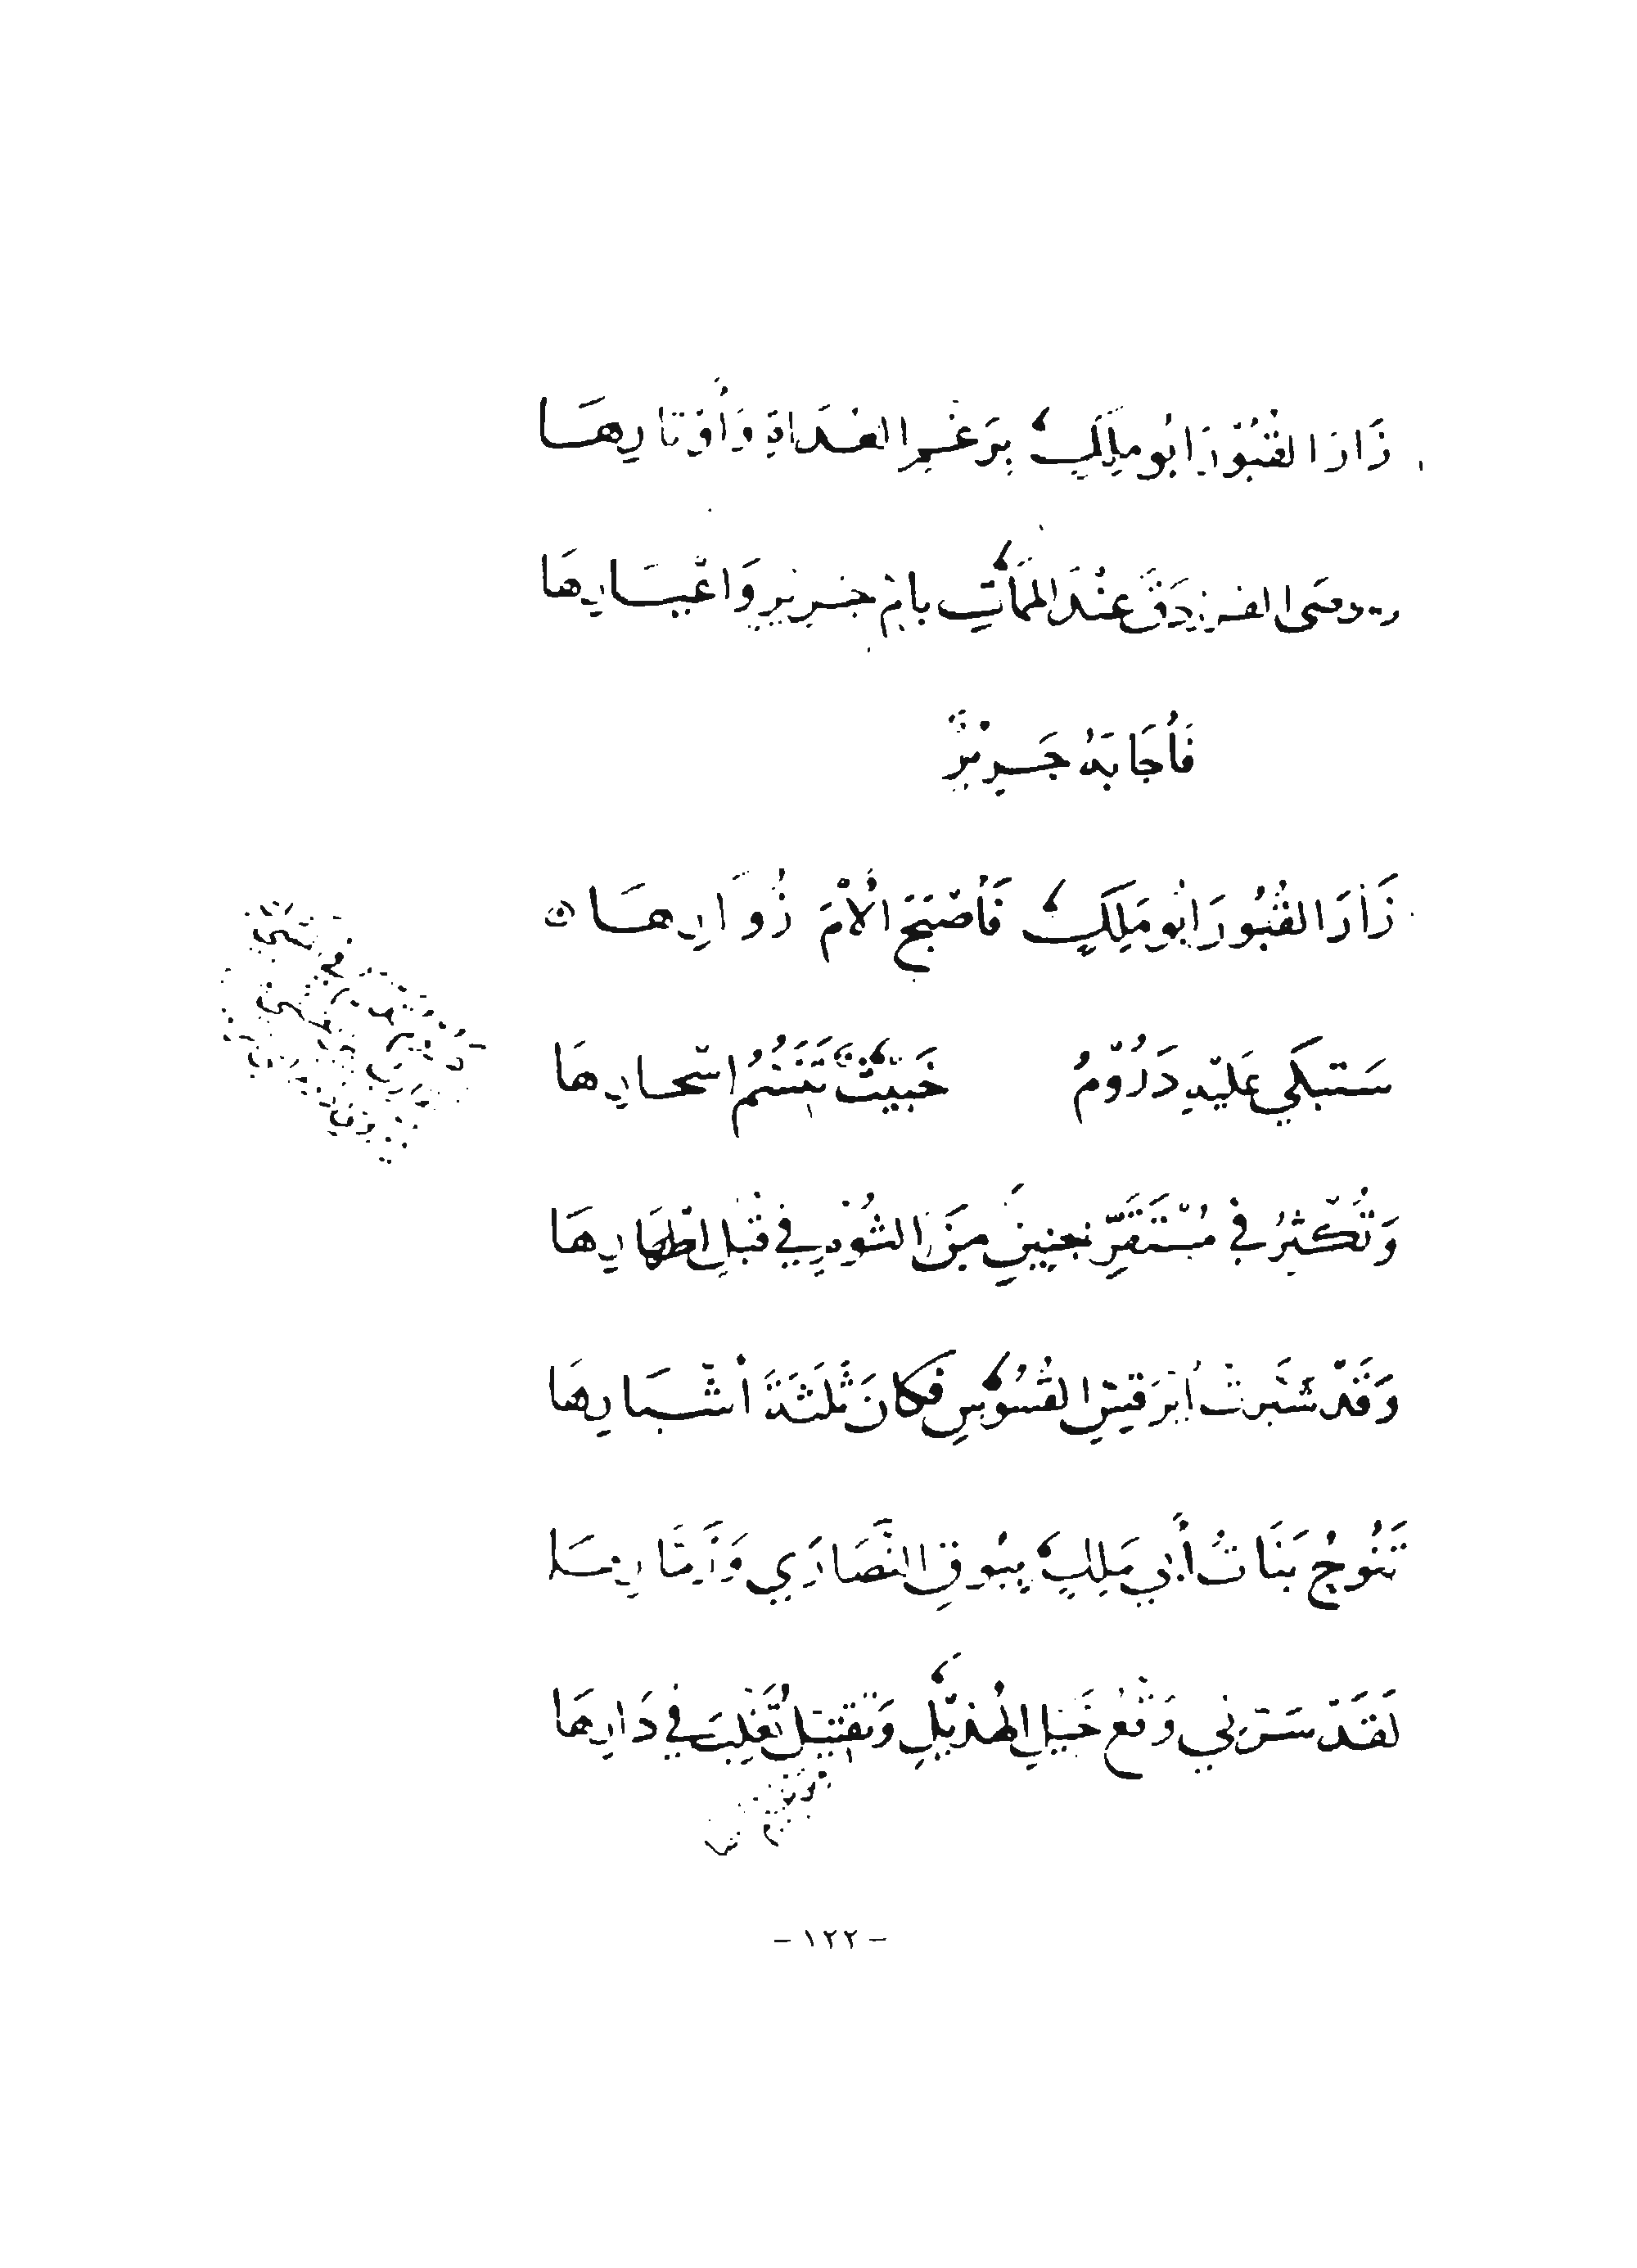 زَارَ القُبُوْرَ ابُو مَلِكٍ بِرَغْمِ العُدَاةِ وَأَوْتَارِهَا
الفرزدق عِنْدَ المَمَاتِ بامِّ جَرِيْرٍ وَاعْيَارِهَا
فَأَجَابَهُ جَرِيْرٌ
زَارَ القُبُورَ ابُو مَلِكٍ فَأَصْبَحَ أَلْأَمَ زُوَّارِهَا
سَتبكي عَليْهِ دَرُوْمُ خَبيْثُ تَنَسُّمُ اسْحارِهَا
وَتُكْثِرُ في مُسْتَقَرِّ جَنِينٍ مِنَ الثُوْمِ في قبْلِ اطْهَارِهَا
وَقَدْ شَبَرَتْ أيْرَ قِسِّ القُسُوْسِ فكَانَ ثَلَثَةَ أشْبَارِهَا
تَنُوحُ بَنَاتُ أَبي مَلِكٍ بِبُوقِ النَّصَارَي وَزَمَّارِهَا
لَقَدْ سَرَّني وَقْعُ خَيْلِ الهُذَيْلِ وَتَقْتِيْلُ تَغْلِبَ في دَارِهَا
- ١٢٢ -